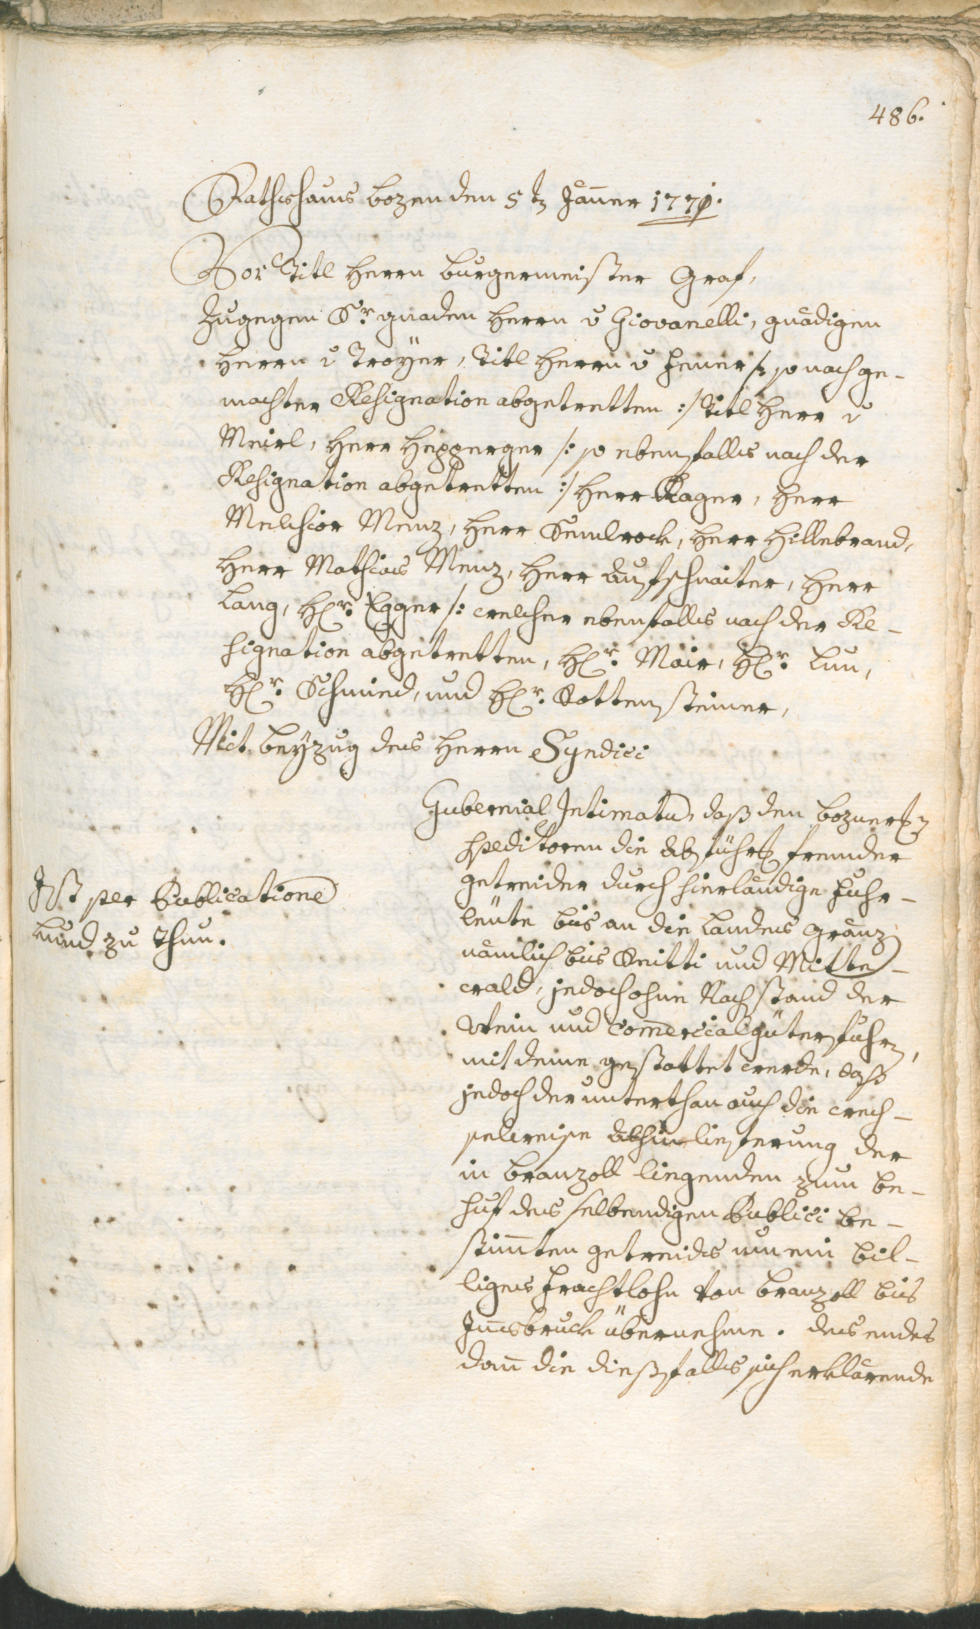 486.
Rathshaus bozen den 5tn Jäner 1771.
Vor Titl Herrn burgermeister Graf,
Zugegen Sr. gnaden Herrn v Giovanelli, gnädigen
Herrn v Troyer, Titl Herrn v Zeuer /: so nach ge-
machter Resignation abgetretten :/ Titl Herr v
Meirl, Herr Hepperger /: so ebenfalls nach der
Resignation abgetretten :/ Herr Kager, Herr
Melchior Menz, Herr Semlrock, Herr Hillebrand,
Herr Mathias Menz, Herr aufschnaiter, Herr
Lang, Hr. Egger /: welcher ebenfalls nach der Re-
signation abgetretten, Hr. Mair, Hr. Lun,
Hr. Schmid, und Hr. Rottensteiner,
Mit beyzug des Herrn Syndici
Gubernial Intimatum, daß den boznerischen
Speditoren die abfuhr fremder
getreider durch hierländige Fuhr-
leüte bis an die Landes gränz
nämlich bis Reitti und Mitte-
wald, jedoch ohne Nachstand der
Wein und Comercialgüterfuhren,
mit deme gestattet werde, daß
jedoch der unterthan auch die wech-
selweise abhinlieferung der
in branzoll liegenden zum be-
huf des selbendigen Publici be-
stimten getreids um ein bil-
liges frachtlohn von branzoll bis
Innsbruck übernehme. des endes
dann die diesfalls sich erklärende
Ist per Publicatione
kund zu thun.